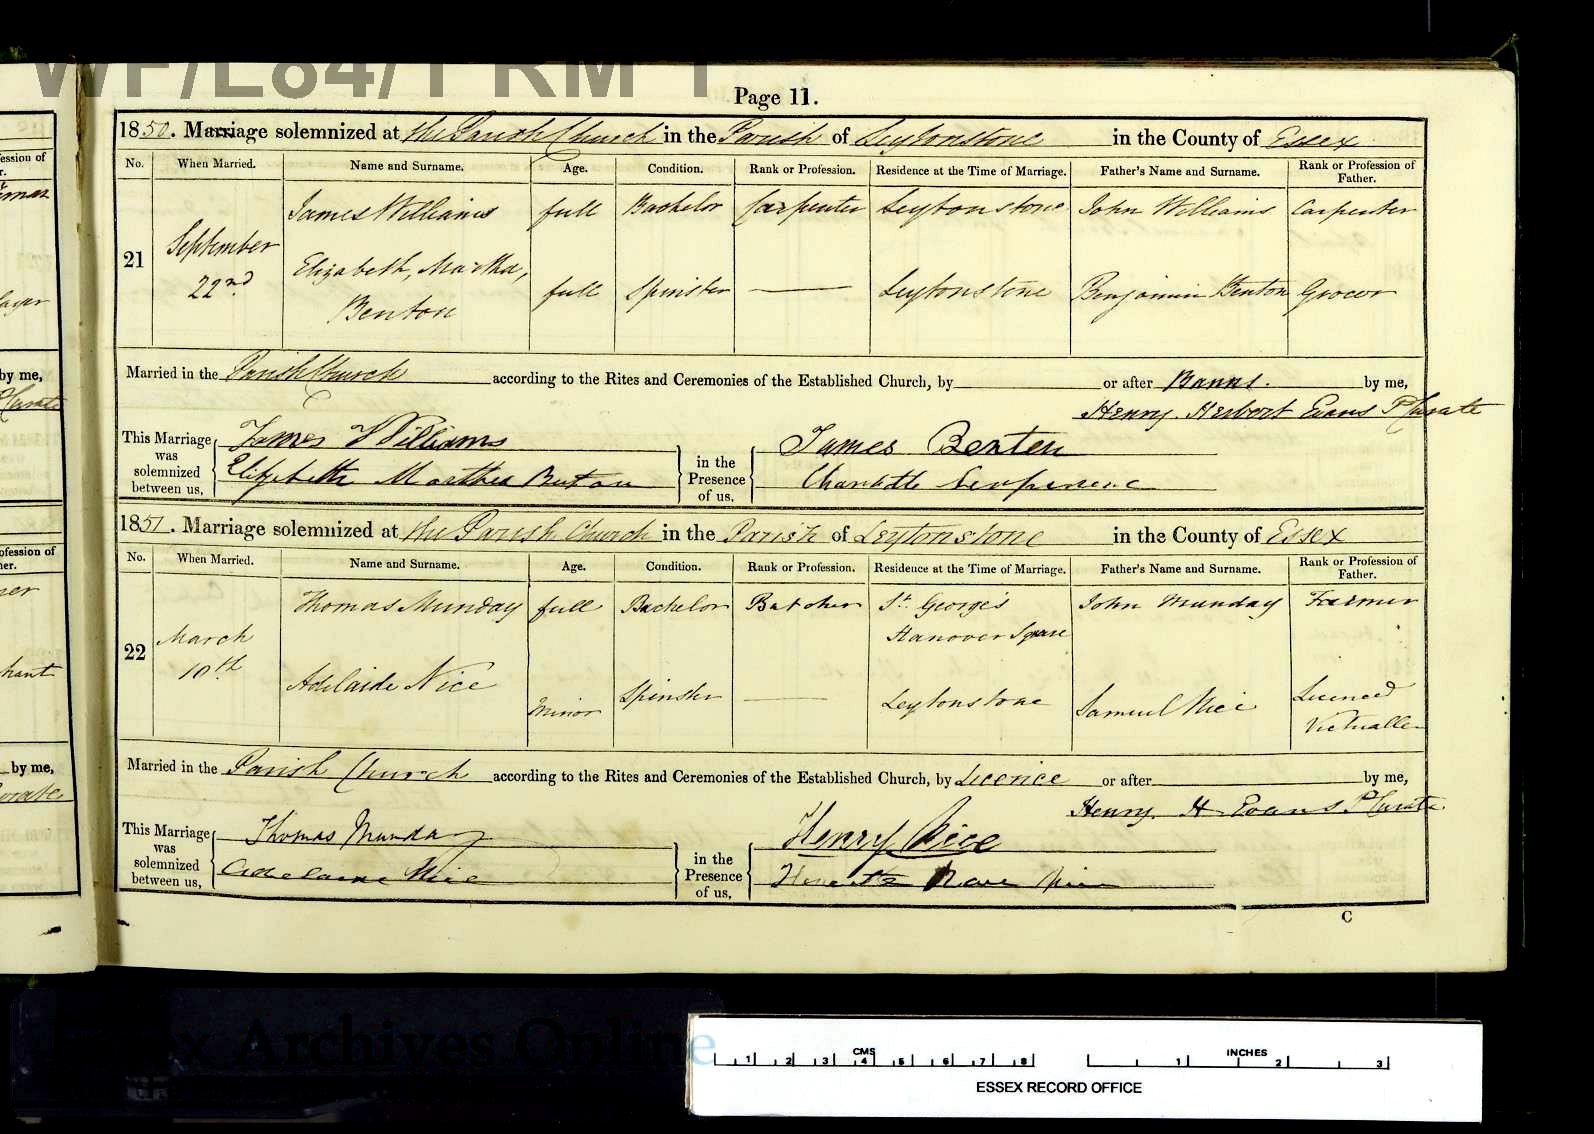 Page 11.
1850. Marriage solemnized at the Parish Church in the Parish of Leytonstone in the County of Essex
No. When Married. Name and Surname. Age. Condition. Rank or Profession. Residence at the Time of Marriage. Father's Name and Surname. Rank or Profession of Father.
James Williams full Bachelor Carpenter Leytonstone John Williams Carpenter
21 September 22nd Elizabeth, Martha, Benton full Spinster Leytonstone Benjamin Benton Grocer
Married in the Parish Church according to the Rites and Ceremonies of the Established Church, by or after Banns. by me,
Henry. Herbert Evans P Curate
This Marriage was solemnized between us, James Williams in the Presence of us, James Benten
Elizabeth Martha Benton Charlotte
1851. Marriage solemnized at the Parish Church in the Parish of Leytonstone in the County of Essex
No. When Married. Name and Surname. Age. Condition. Rank or Profession. Residence at the Time of Marriage. Father's Name and Surname. Rank or Profession of Father.
Thomas Munday full Bachelor Butcher St. George's Hanover Square John Munday Farmer
22 March 10th Adelaide Nice Minor Spinster Leytonstone Samuel Nice Licenced Victualler
Married in the Parish Church according to the Rites and Ceremonies of the Established Church, by Licence or after by me,
Henry. H Evans P Curate.
This Marriage was solemnized between us, Thomas Munday in the Presence of us, Henry Nice
Adelaide Nice
C
Archives Online
CMS
1 2 3 4 5 6 7 8
INCHES
1 2 3
ESSEX RECORD OFFICE